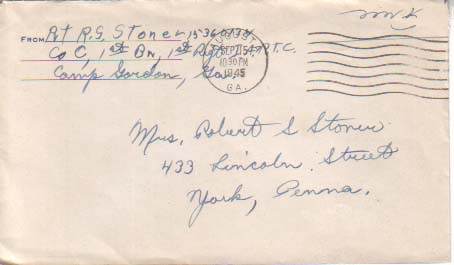 FROM Pvt R.G. Stoner
Co C, 1st Bn, 1st R.T.C.
Camp Gordon, Ga
AUGUSTA
SEP 15
10:30 PM
1945
GA.
Mrs. Robert G Stoner
433 Lincoln Street
York, Penna.